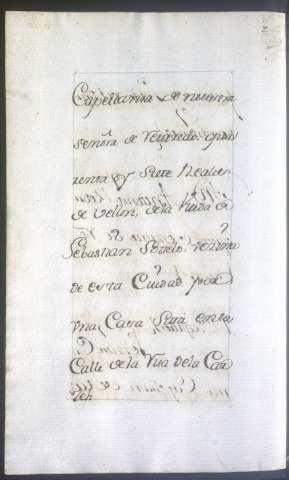 Capellania de nuestra
señora de
renta y siete Reales
de Vellon, de la Viuda de
Sebastian Sotelo vezina
de esta Ciudad por
Vna, Casa Sita en la
Calle de la Rua de la Car
zel